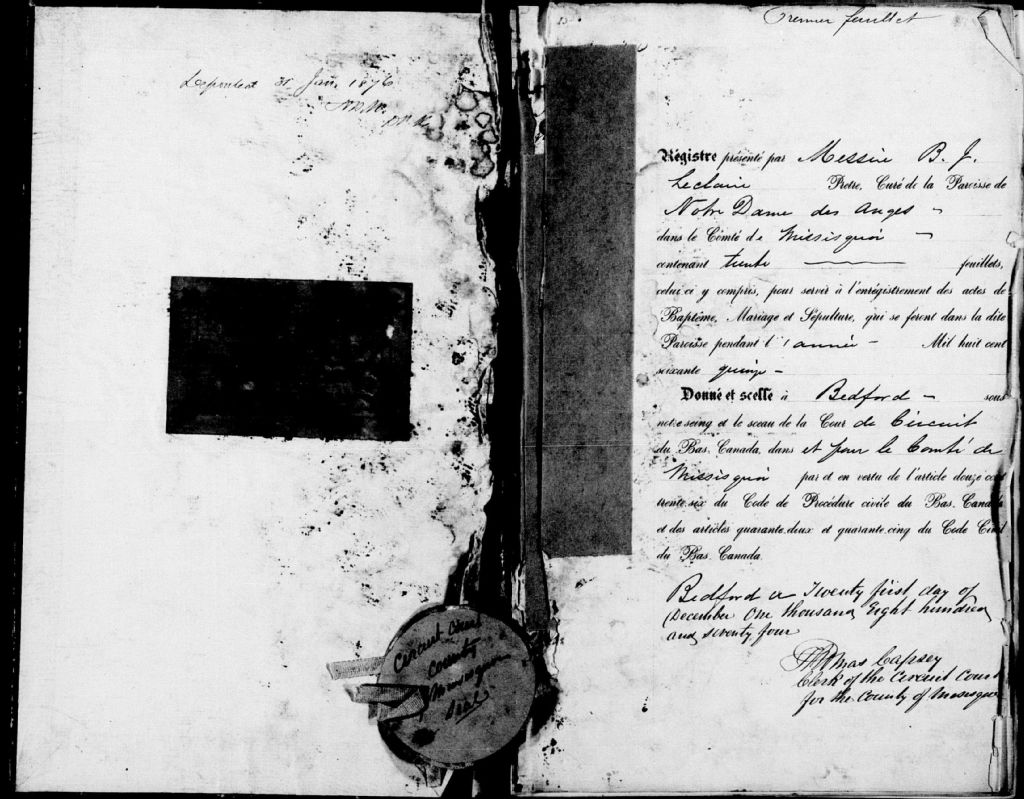 Deposited 31 Jan. 1876
Premier feuillet
Régistre présenté par Messire B. J.
Leclaire Prêtre, Curé de la Paroisse de
Notre Dame des Anges -
dans le Comté de Missisquoi -
contenant trente feuillets,
celui ci y compris, pour servir à l'enrégistrement des actes de
Baptême, Mariage et Sépulture, qui se feront dans la dite
Paroisse pendant l'année - Mil huit cent
soixante quinze -
Donné et scellé à Bedford - sous
notre seing et le sceau de la Cour de Circuit
du Bas. Canada, dans et pour le Comté de
Missisquoi par et en vertu de l'article douze cent
trente.six du Code de Procédure civile du Bas. Canada
et des articles quarante.deux et quarante.cinq du Code Civil
du Bas. Canada.
Bedford Twenty first day of
December One thousand Eight hundred
and seventy four
Thomas Capsey
Clerk of the Circuit Court
for the County of Missisquoi
Circuit Court
County
Missisquoi
Seal